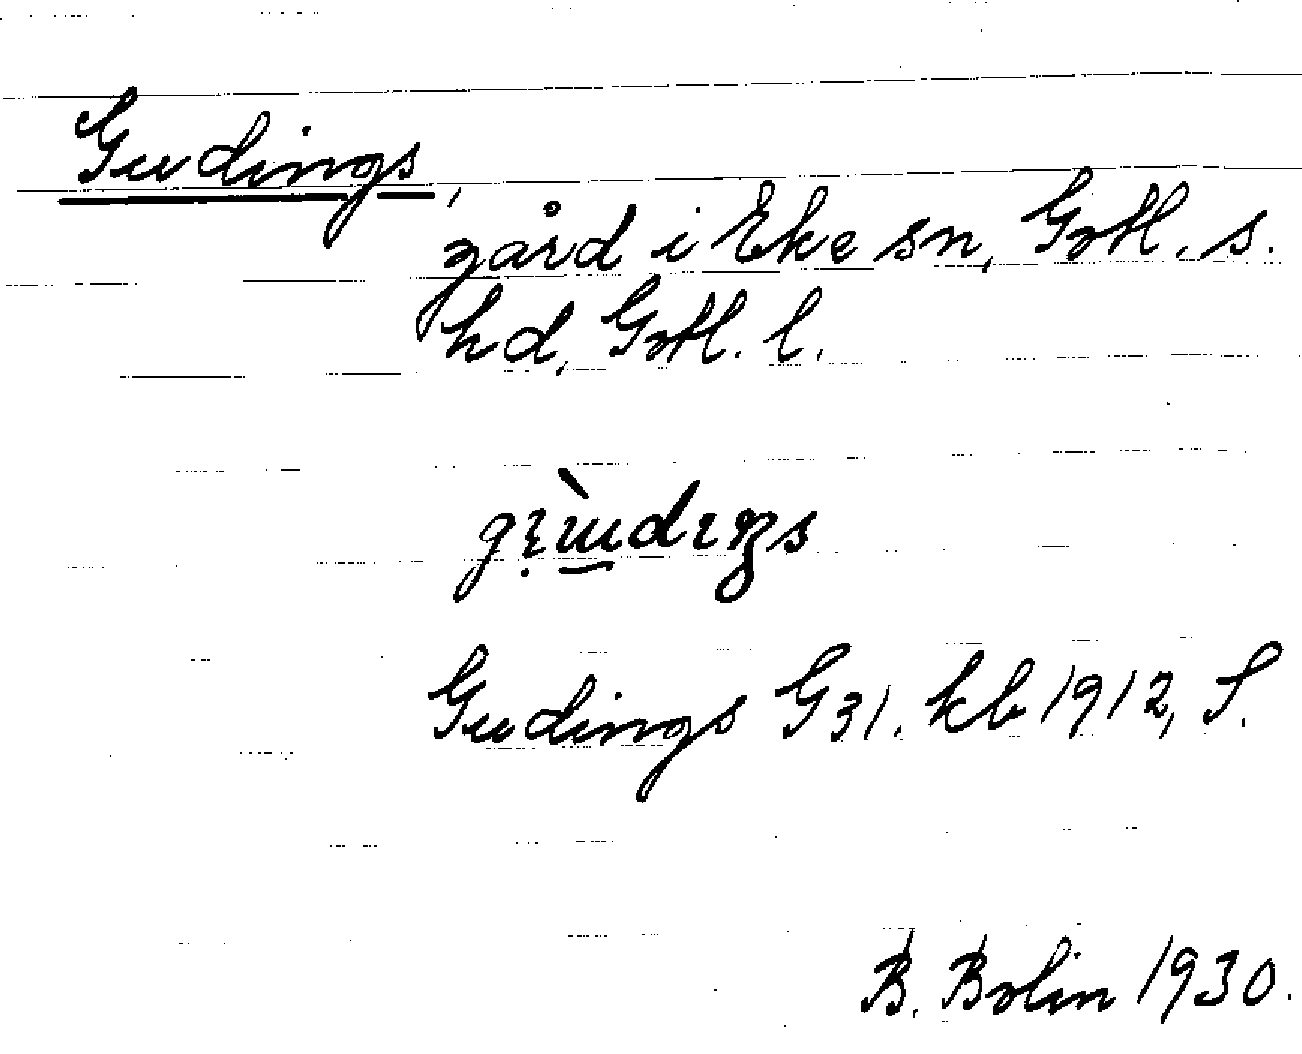 Gudings,
gård i Eke sn, Gotl. s.
hd, Gotl. l.
Gudings G31. kb 1912, S.
B. Bolin 1930.